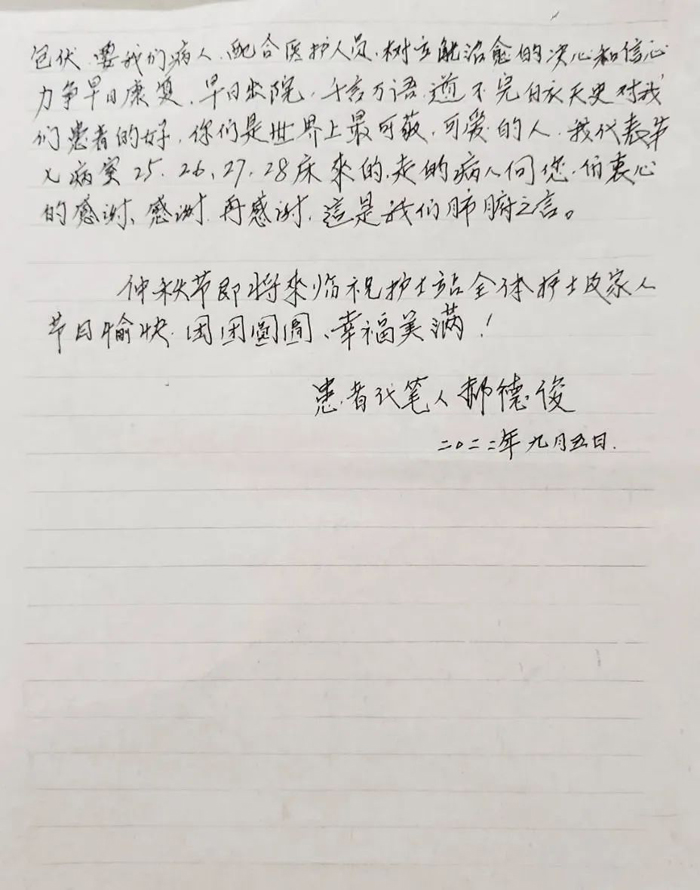 包伏、要我们病人、配合医护人员、树立能治愈的决心和信心
力争早日康复、早日出院，千言万语，道不完白衣天史对我
们患者的好，你们是世界上最可敬、可爱的人，我代表第
七病室25、26、27、28床來的，走的病人向您们衷心
的感谢、感谢、再感谢，這是我们肺腑之言。
仲秋节即将來临祝护士站全体护士及家人
节日愉快、团团圆圆、幸福美满！
患者代笔人郝德俊
二〇二二年九月五日.